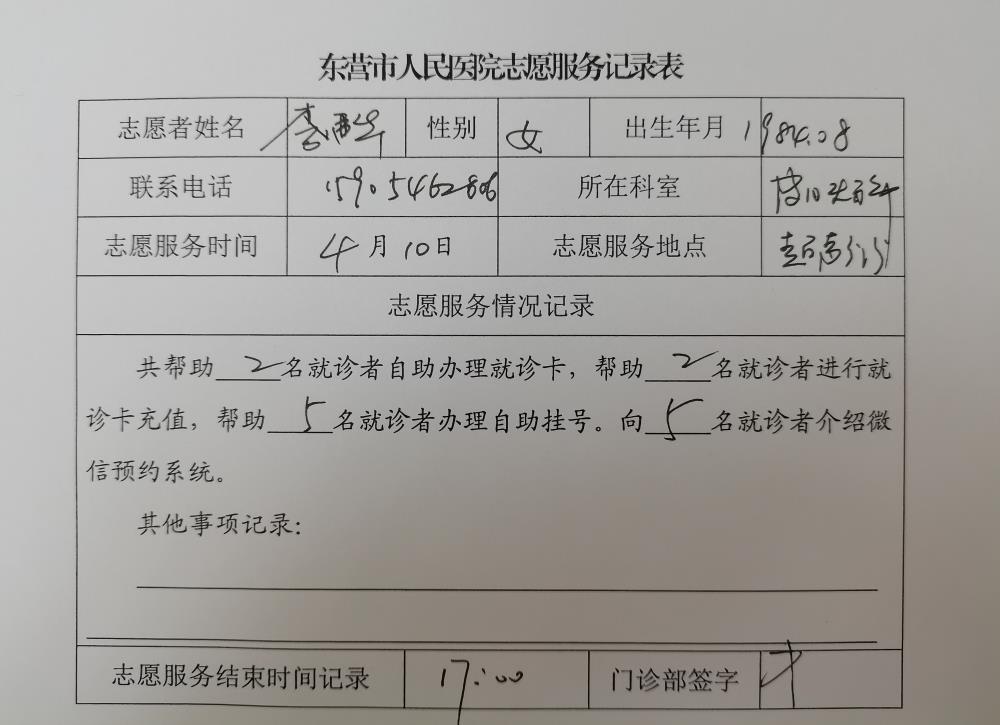 东营市人民医院志愿服务记录表
志愿者姓名 李 性别 女 出生年月 1984.08
联系电话 15905462806 所在科室
志愿服务时间 4月10日 志愿服务地点
志愿服务情况记录
共帮助 2 名就诊者自助办理就诊卡，帮助 2 名就诊者进行就
诊卡充值，帮助 5 名就诊者办理自助挂号。向 5 名就诊者介绍微
信预约系统。
其他事项记录：
志愿服务结束时间记录 17:00 门诊部签字